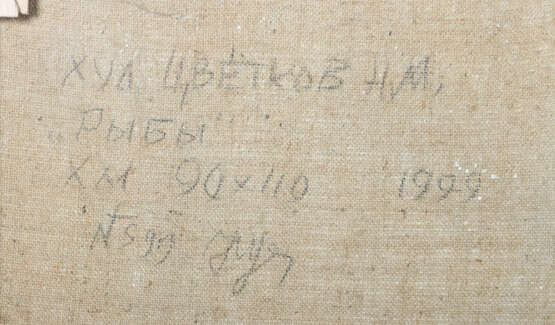 ХУД. ЦВЕТКОВ Н.М,
"РЫБЫ"
ХМ 90×110 1999